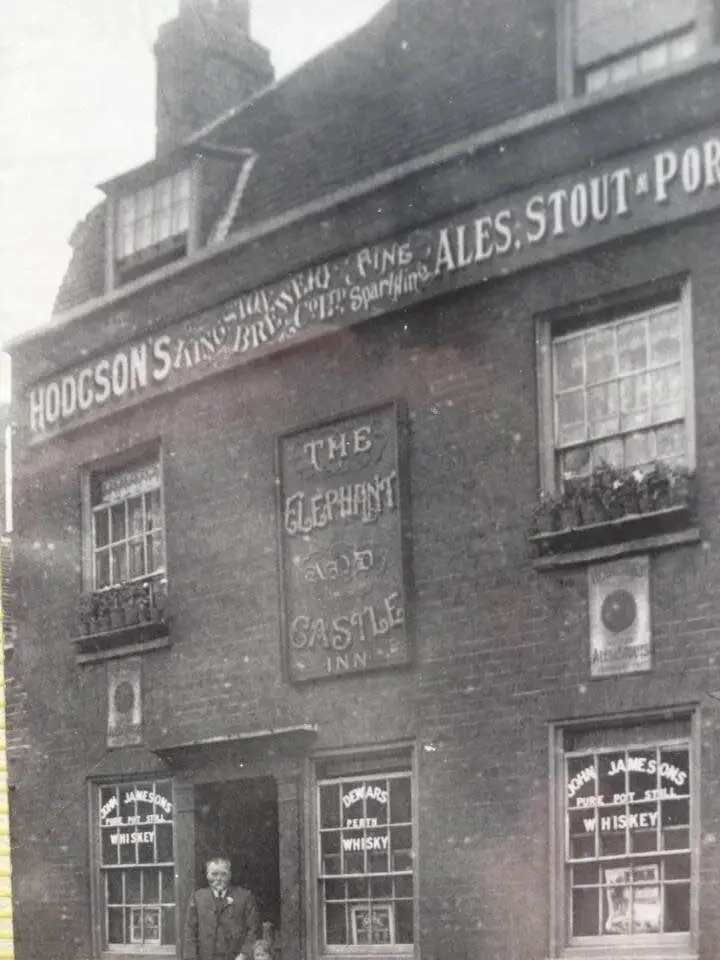 HODGSON'S KINGSTON BREWERY Co LTD FINE Sparkling ALES, STOUT & POR
THE
ELEPHANT
AND
CASTLE
INN
ALES & STOUTS
JOHN JAMESONS
PURE POT STILL
WHISKEY
DEWARS
PERTH
WHISKY
JOHN JAMESONS
PURE POT STILL
WHISKEY